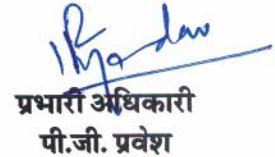 प्रभारी अधिकारी
पी.जी. प्रवेश